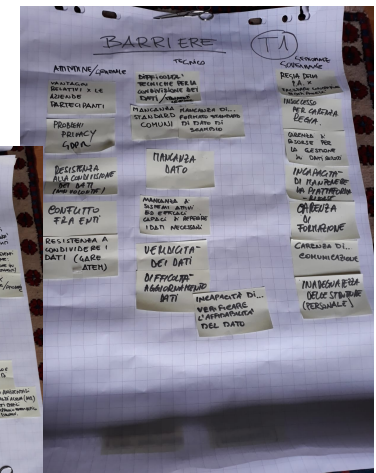 BARRIERE
T1
ATTITUDINE/
VANTAGGI
RELATIVI X LE
AZIENDE
PARTECIPANTI
PROBLEMI
PRIVACY
GDPR
RESISTENZA
ALLA CONDIVISIONE
DEI DATI
CONFLITTO
FRA ENTI
RESISTENZA A
CONDIVIDERE I
DATI (GARE
ATEM)
TECNICO
DIFFICOLTA'
TECNICHE PER LA
CONDIVISIONE DEI
DATI/
MANCANZA
STANDARD
COMUNI
MANCANZA DI...
FORMATO STANDARD
DI DATO DI
SCAMBIO
MANCANZA
DATO
MANCANZA DI
SISTEMI ATTIVI
ED EFFICACI
CAPACI DI REPERIRE
I DATI NECESSARI
VERIDICITA'
DEI DATI
DIFFICOLTA'
AGGIORNAMENTO
DATI
INCAPACITÀ DI...
VERIFICARE
L'AFFIDABILITÀ
DEL DATO
REGIA DELLA
P.A. X
INSUCCESSO
PER CARENZA
REGIA
CARENZA DI
RISORSE PER
LA GESTIONE
INCAPACITÀ
DI MANTENERE
LA PIATTAFORMA
CARENZA
FORMAZIONE
CARENZA DI...
COMUNICAZIONE
INADEGUATEZZA
DELLE STRUTTURE
(PERSONALE)